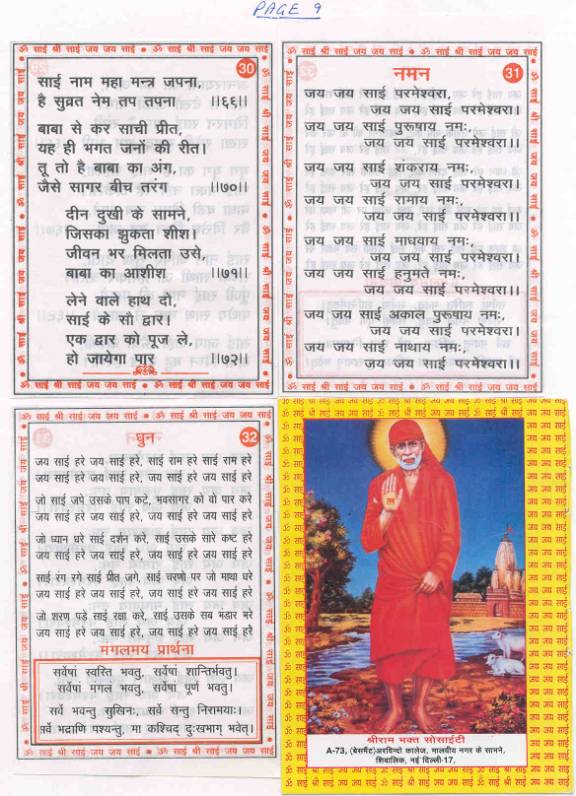 PAGE 9
ॐ साई श्री साई जय जय साई ॐ साई श्री साई जय जय साई
30
साई नाम महा मन्त्र जपना,
है सुव्रत नेम तप तपना ।।६६।।
बाबा से कर साची प्रीत,
यह ही भगत जनों की रीत।
तू तो है बाबा का अंग,
जैसे सागर बीच तरंग ।।७०।।
दीन दुखी के सामने,
जिसका झुकता शीश।
जीवन भर मिलता उसे,
बाबा का आशीश ।।७१।।
लेने वाले हाथ दो,
साई के सौ द्वार।
एक द्वार को पूज ले,
हो जायेगा पार ।।७२।।
नमन
31
जय जय साई परमेश्वरा,
जय जय साई परमेश्वरा।
जय जय साई पुरूषाय नमः,
जय जय साई परमेश्वरा।
जय जय साई शंकराय नमः,
जय जय साई परमेश्वरा।
जय जय साई रामाय नमः,
जय जय साई परमेश्वरा।
जय जय साई माधवाय नमः,
जय जय साई परमेश्वरा।
जय जय साई हनुमते नमः,
जय जय साई परमेश्वरा।
जय जय साई अकाल पुरूषाय नमः,
जय जय साई परमेश्वरा।
जय जय साई नाथाय नमः,
जय जय साई परमेश्वरा।।
धुन
32
जय साई हरे जय साई हरे, साई राम हरे साई राम हरे
जय साई हरे जय साई हरे, जय साई हरे जय साई हरे
जो साई जपे उसके पाप कटे, भवसागर को वो पार करे
जय साई हरे जय साई हरे, जय साई हरे जय साई हरे
जो ध्यान धरे साई दर्शन करे, साई उसके सारे कष्ट हरे
जय साई हरे जय साई हरे, जय साई हरे जय साई हरे
साई रंग रगे साई प्रीत जगे, साई चरणो पर जो माथा धरे
जय साई हरे जय साई हरे, जय साई हरे जय साई हरे
जो शरण पड़े साई रक्षा करे, साई उसके सब भंडार भरे
जय साई हरे जय साई हरे, जय साई हरे जय साई हरे
मंगलमय प्रार्थना
सर्वेषां स्वस्ति भवतु, सर्वेषां शान्तिर्भवतु।
सर्वेषां मंगलं भवतु, सर्वेषां पूर्ण भवतु।
सर्वे भवन्तु सुखिनः, सर्वे सन्तु निरामयाः।
सर्वे भद्राणि पश्यन्तु, मा कश्चिद् दुःखभाग् भवेत्।
श्रीराम भक्त सोसाईटी
A-73, (बेसमैंट)अरविन्दो कालेज, मालवीय नगर के सामने,
शिवालिक, नई दिल्ली-17,